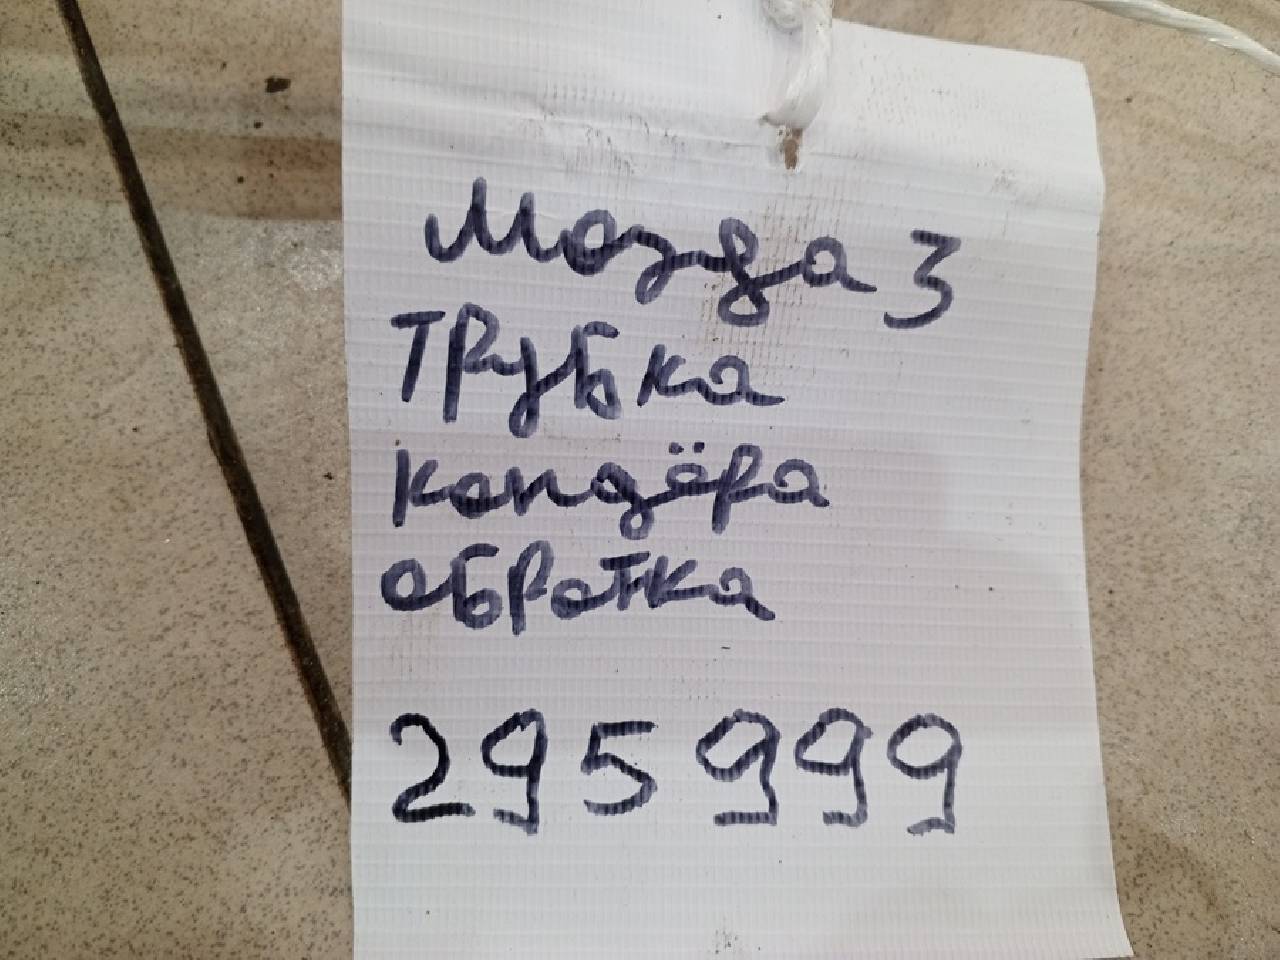 Мозда 3
Трубка
кондёра
обратка
295999